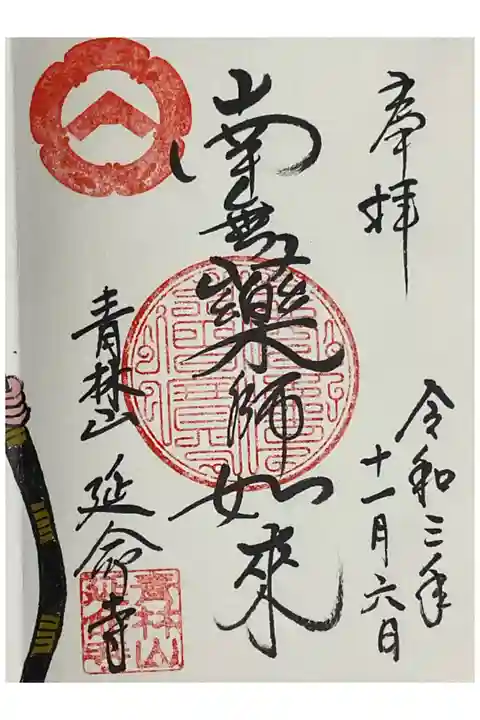 奉拝
令和三年
十一月六日
南無薬師如来
青林山 延命寺
青林山
延命寺